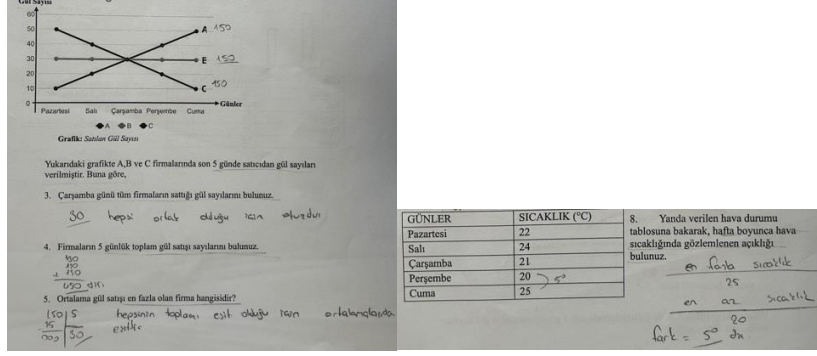 Gül Sayısı
60
50
40
30
20
10
0
A 150
E 150
C 150
Günler
Pazartesi Salı Çarşamba Perşembe Cuma
A B C
Grafik: Satılan Gül Sayısı
Yukarıdaki grafikte A,B ve C firmalarında son 5 günde satıcıdan gül sayıları
verilmiştir. Buna göre,
3. Çarşamba günü tüm firmaların sattığı gül sayılarını bulunuz.
30 hepsi ortak olduğu için otuzdur
4. Firmaların 5 günlük toplam gül satışı sayılarını bulunuz.
150
150
+ 150
450
5. Ortalama gül satışı en fazla olan firma hangisidir?
150 5 hepsinin toplamı eşit olduğu için ortalamalarıda
15 30 eşittir
GÜNLER SICAKLIK (°C)
Pazartesi 22
Salı 24
Çarşamba 21
Perşembe 20
Cuma 25
5°
8. Yanda verilen hava durumu
tablosuna bakarak, hafta boyunca hava
sıcaklığında gözlemlenen açıklığı
bulunuz.
en fazla sıcaklık
25
en az sıcaklık
20
fark = 5°